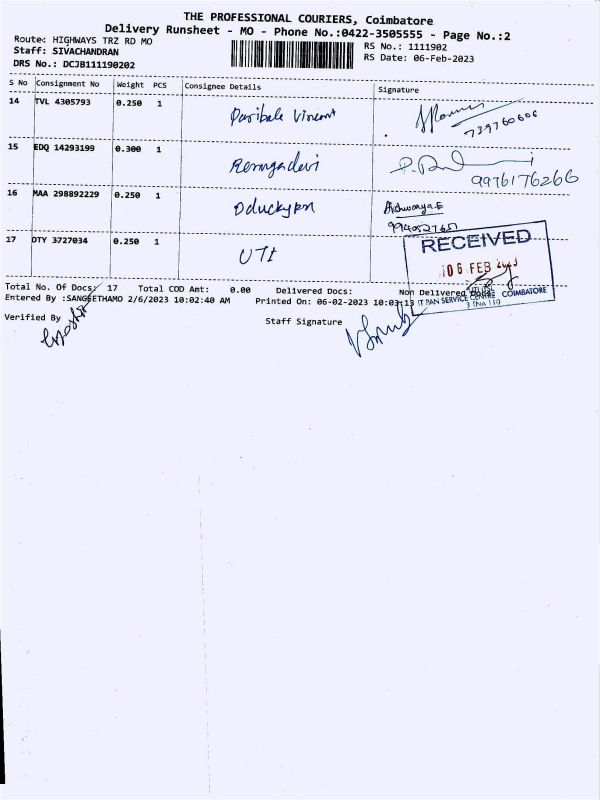 THE PROFESSIONAL COURIERS, Coimbatore
Delivery Runsheet - MO - Phone No.:0422-3505555 - Page No.:2
Route: HIGHWAYS TRZ RD MO
RS No.: 1111902
Staff: SIVACHANDRAN
RS Date: 06-Feb-2023
DRS No.: DCJB111190202
S No Consignment No Weight PCS Consignee Details Signature
14 TVL 4305793 0.250 1 Vincent
739760606
15 EDQ 14293199 0.300 1 Rengadevi
9976176266
16 MAA 298892229 0.250 1
Aishwarya.E
17 DTY 3727034 0.250 1 UTI
RECEIVED
06 FEB 2023
Total No. Of Docs: 17 Total COD Amt: 0.00 Delivered Docs: Non Delivered Docs:
Entered By :SANGEETHAMO 2/6/2023 10:02:40 AM Printed On: 06-02-2023 10:03:13
IT PAN SERVICE CENTRE COIMBATORE
Verified By
Staff Signature